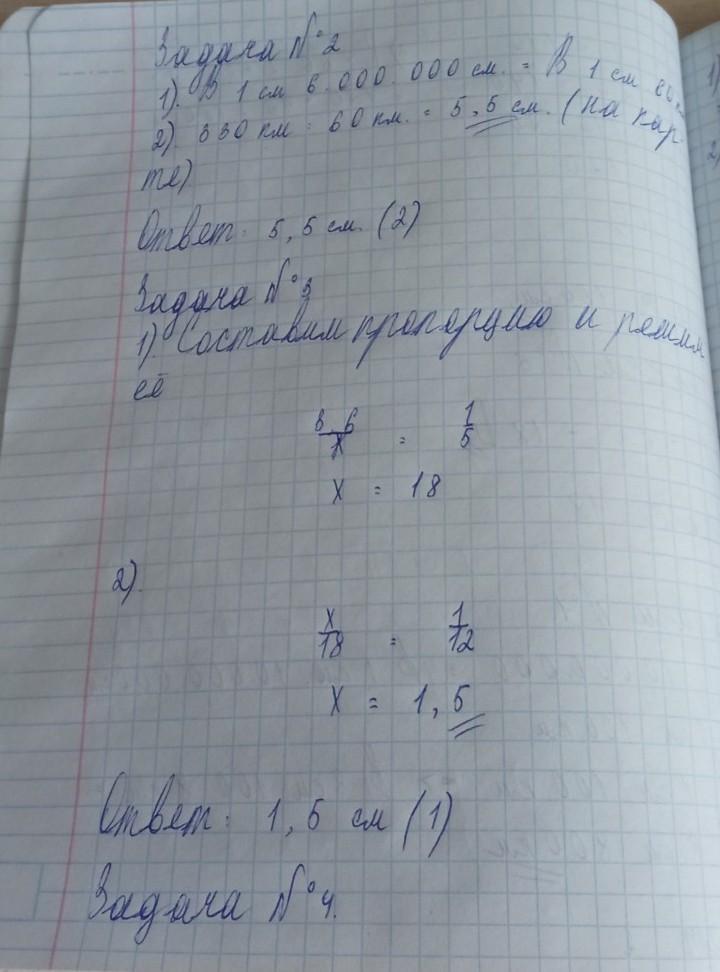 Задача №2
1). В 1 см 6.000.000 см. = В 1 см 60 км
2). 330 км : 60 км. = 5,5 см. (на кар-
те)
Ответ: 5,5 см. (2)
Задача №3
1). Составим пропорцию и решим
её
3,6/x = 1/5
x = 18
2).
x/18 = 1/12
x = 1,5
Ответ: 1,5 см (1)
Задача №4.